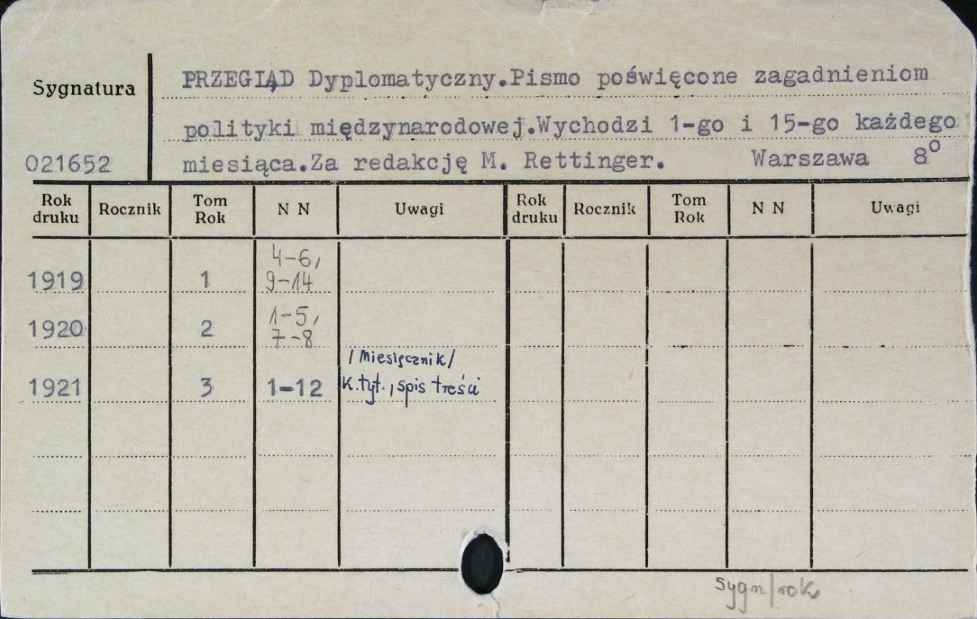 Sygnatura
PRZEGLĄD Dyplomatyczny.Pismo poświęcone zagadnieniom
polityki międzynarodowej.Wychodzi 1-go i 15-go każdego
021652
miesiąca.Za redakcję M. Rettinger. Warszawa 8°
Rok druku Rocznik Tom Rok N N Uwagi Rok druku Rocznik Tom Rok N N Uwagi
4-6,
1919 1 9-14
1-5,
1920 2 7-8
/Miesięcznik/
1921 3 1-12 K.tyt., spis treści
sygn/rok